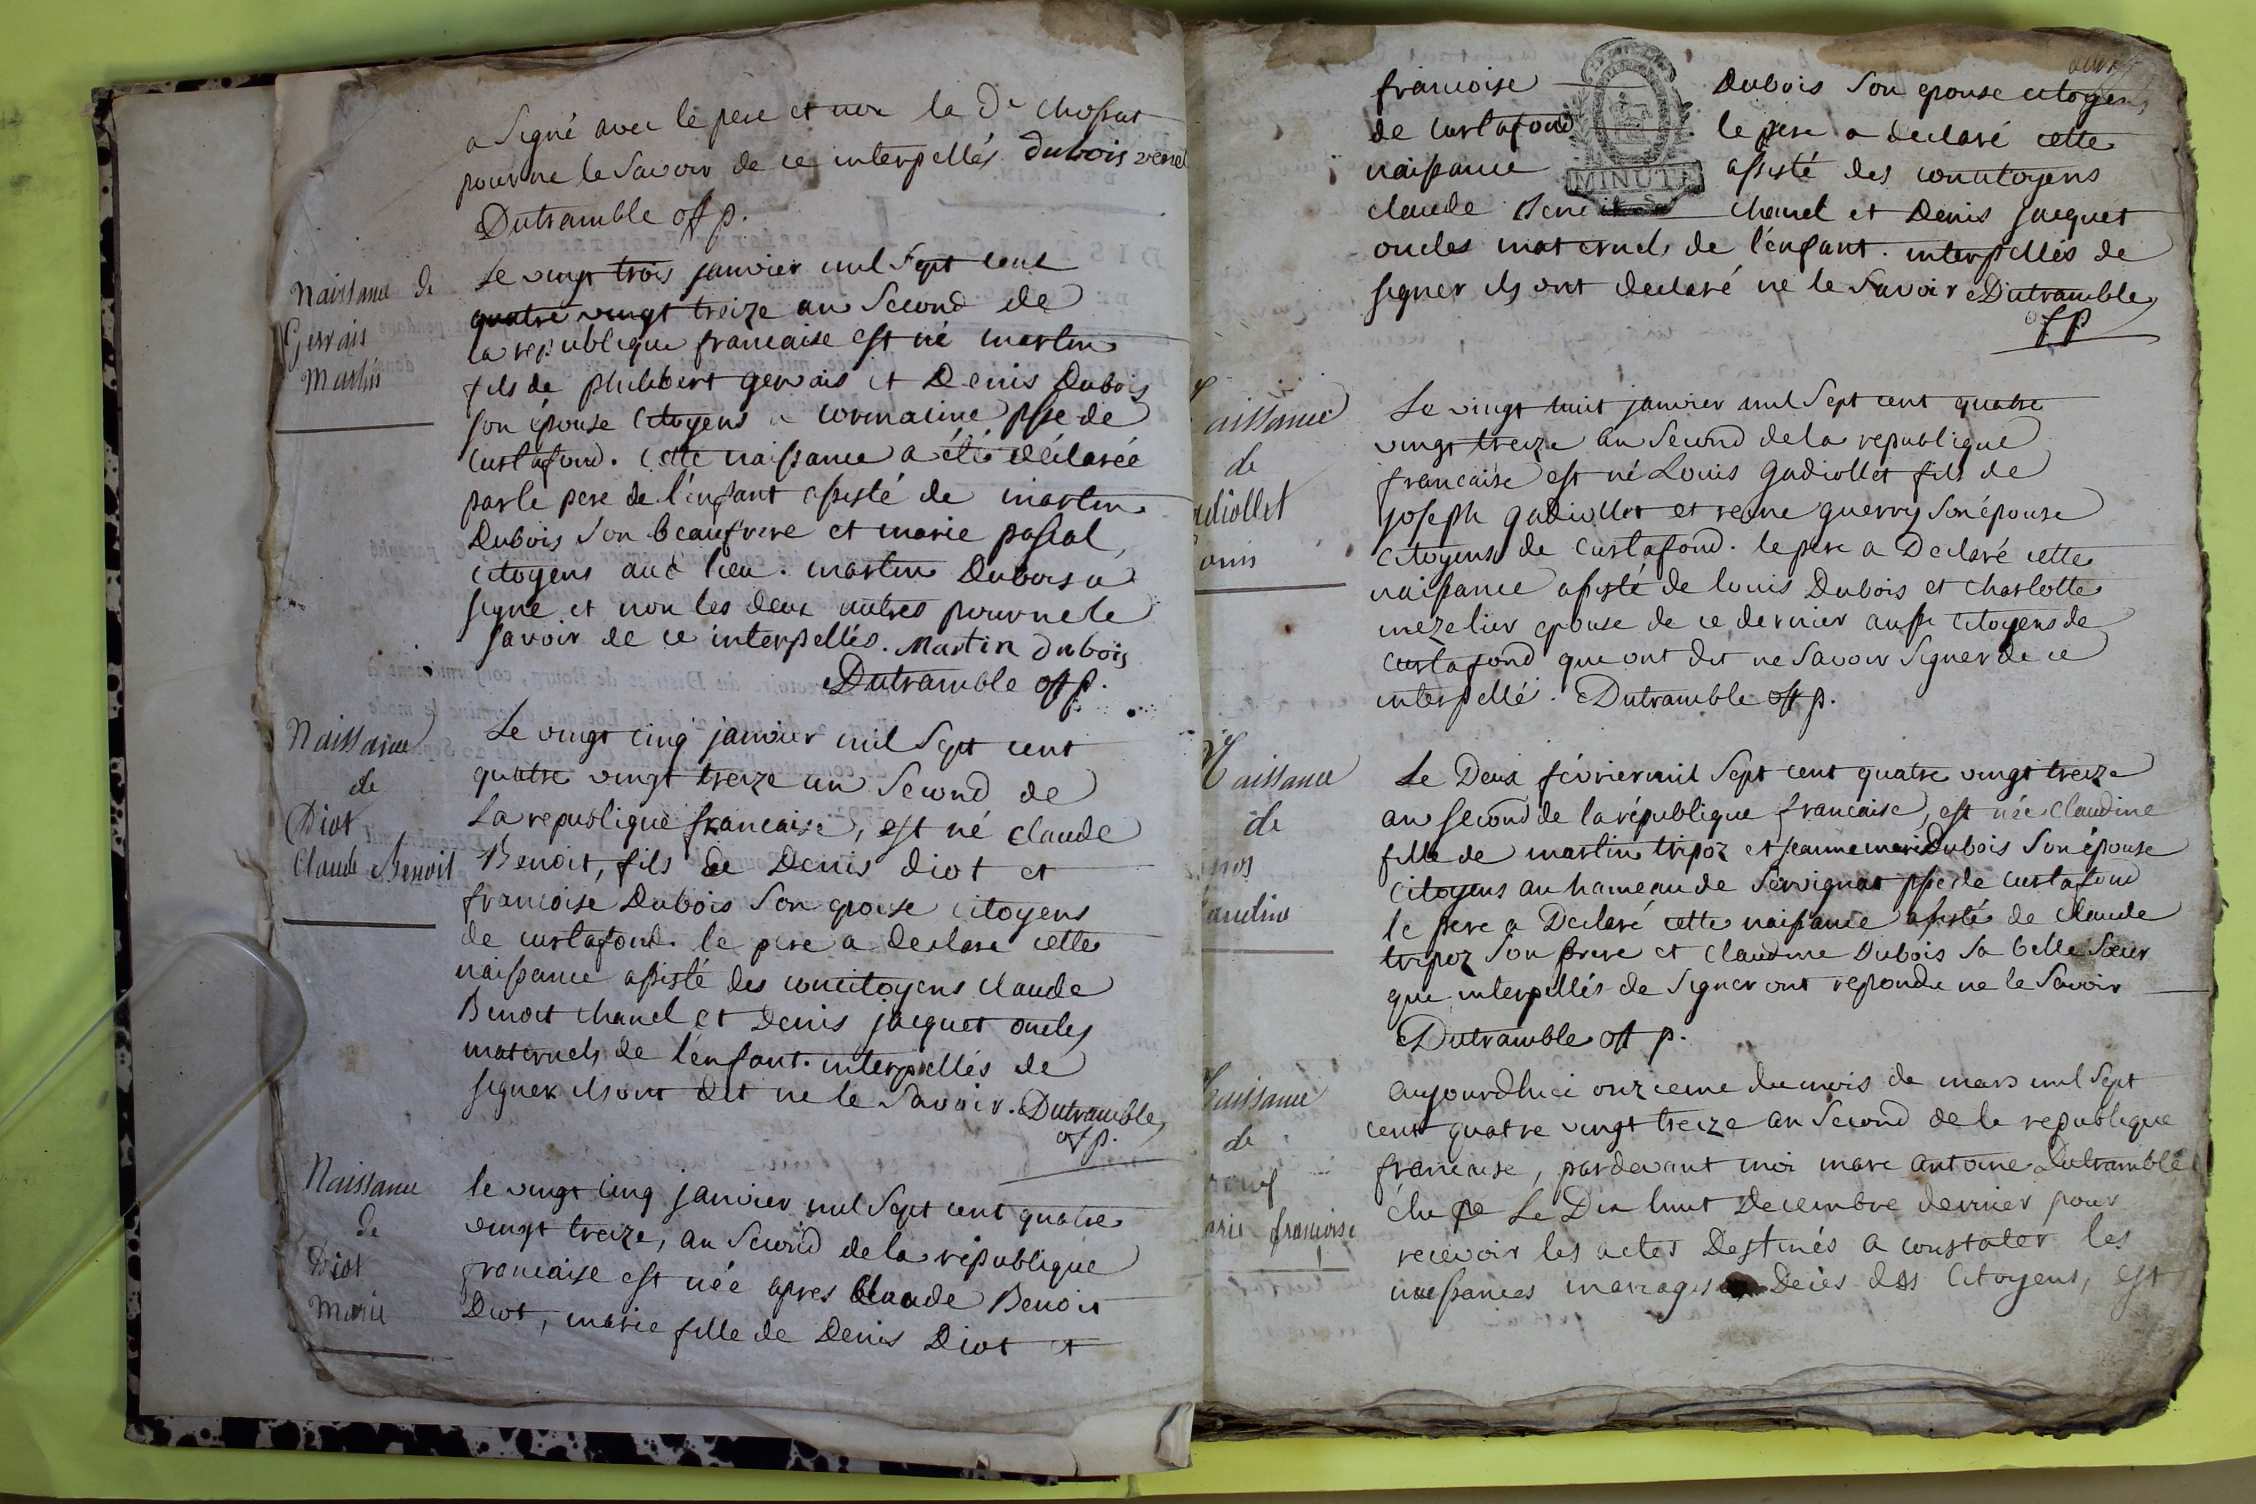 a Signé avec le pere et non la De Chossat
pour ne le Savoir de ce interpellés dubois
Dutramble off p.
Naissance de
Gervais
Martin
Le vingt trois janvier mil Sept cent
quatre vingt treize an Second de
la republique francaise est né martin
fils de philibert gervais et Denis Dubois
son épouse Citoyens a cormacine psse de
Curtafond. Cette naissance a été déclareé
par le pere de l'enfant assisté de martin
Dubois Son beaufrere et marie
Citoyens aud lieu. martin Dubois a
signé et non les deux autres pour ne le
savoir de ce interpellés. Martin dubois
Dutramble off p.
Naissance
de
Diot
Claude Benoit
Le vingt cinq janvier mil Sept cent
quatre vingt treize an Second de
La republique francaise, est né claude
Benoit, fils de Denis diot et
francoise Dubois Son epouse Citoyens
de curtafond. le pere a declaré cette
naissance assisté des concitoyens claude
Benoit chanel et Denis jacquet oncles
maternels de l'enfant. interpellés de
signer ils ont dit ne le Savoir. Dutramble
off p.
Naissance
de
Diot
Marie
le vingt cinq janvier mil Sept cent quatre
vingt treize, an Second de la république
francaise est née apres Claude Benoit
Diot, marie fille de Denis Diot et
francoise Dubois Son epouse citoyens
de curtafond le pere a declaré cette
naissance assisté des concitoyens
MINUTE
claude Benoit chanel et Denis jacquet
oncles maternels de l'enfant. interpellés de
signer ils ont declaré ne le Savoir Dutramble
off p
Naissance
de
adiollet
ouis
Le vingt huit janvier mil Sept cent quatre
vingt treize an Second de la republique
francaise est né Louis gadiollet fils de
joseph gadiollet et reine guerry Son épouse
Citoyens de Curtafond. le pere a Declaré cette
naissance assisté de louis Dubois et charlotte
mezelier epouse de ce dernier aussi Citoyens de
Curtafond que ont dit ne Savoir Signer de ce
interpellé. Dutramble off p.
Naissance
de
audine
Le Deux février mil Sept cent quatre vingt treize
an second de la république francaise, est née Claudine
fille de martin tripoz et jeanne marie Dubois Son épouse
Citoyens au hameau de Servignat psse de Curtafond
le pere a Declaré cette naissance assisté de Claude
tripoz Son frere et Claudine Dubois Sa belle Sœur
que interpellés de Signer ont repondu ne le Savoir
Dutramble off p.
Naissance
de
arie francoise
aujourdhui onzieme du mois de mars mil Sept
cent quatre vingt treize an Second de la republique
francaise, pardevant moi marc antoine Dutramble
élu Le Dix huit Decembre dernier pour
recevoir les actes Destinés a constater les
naissances mariages Déces des Citoyens, est